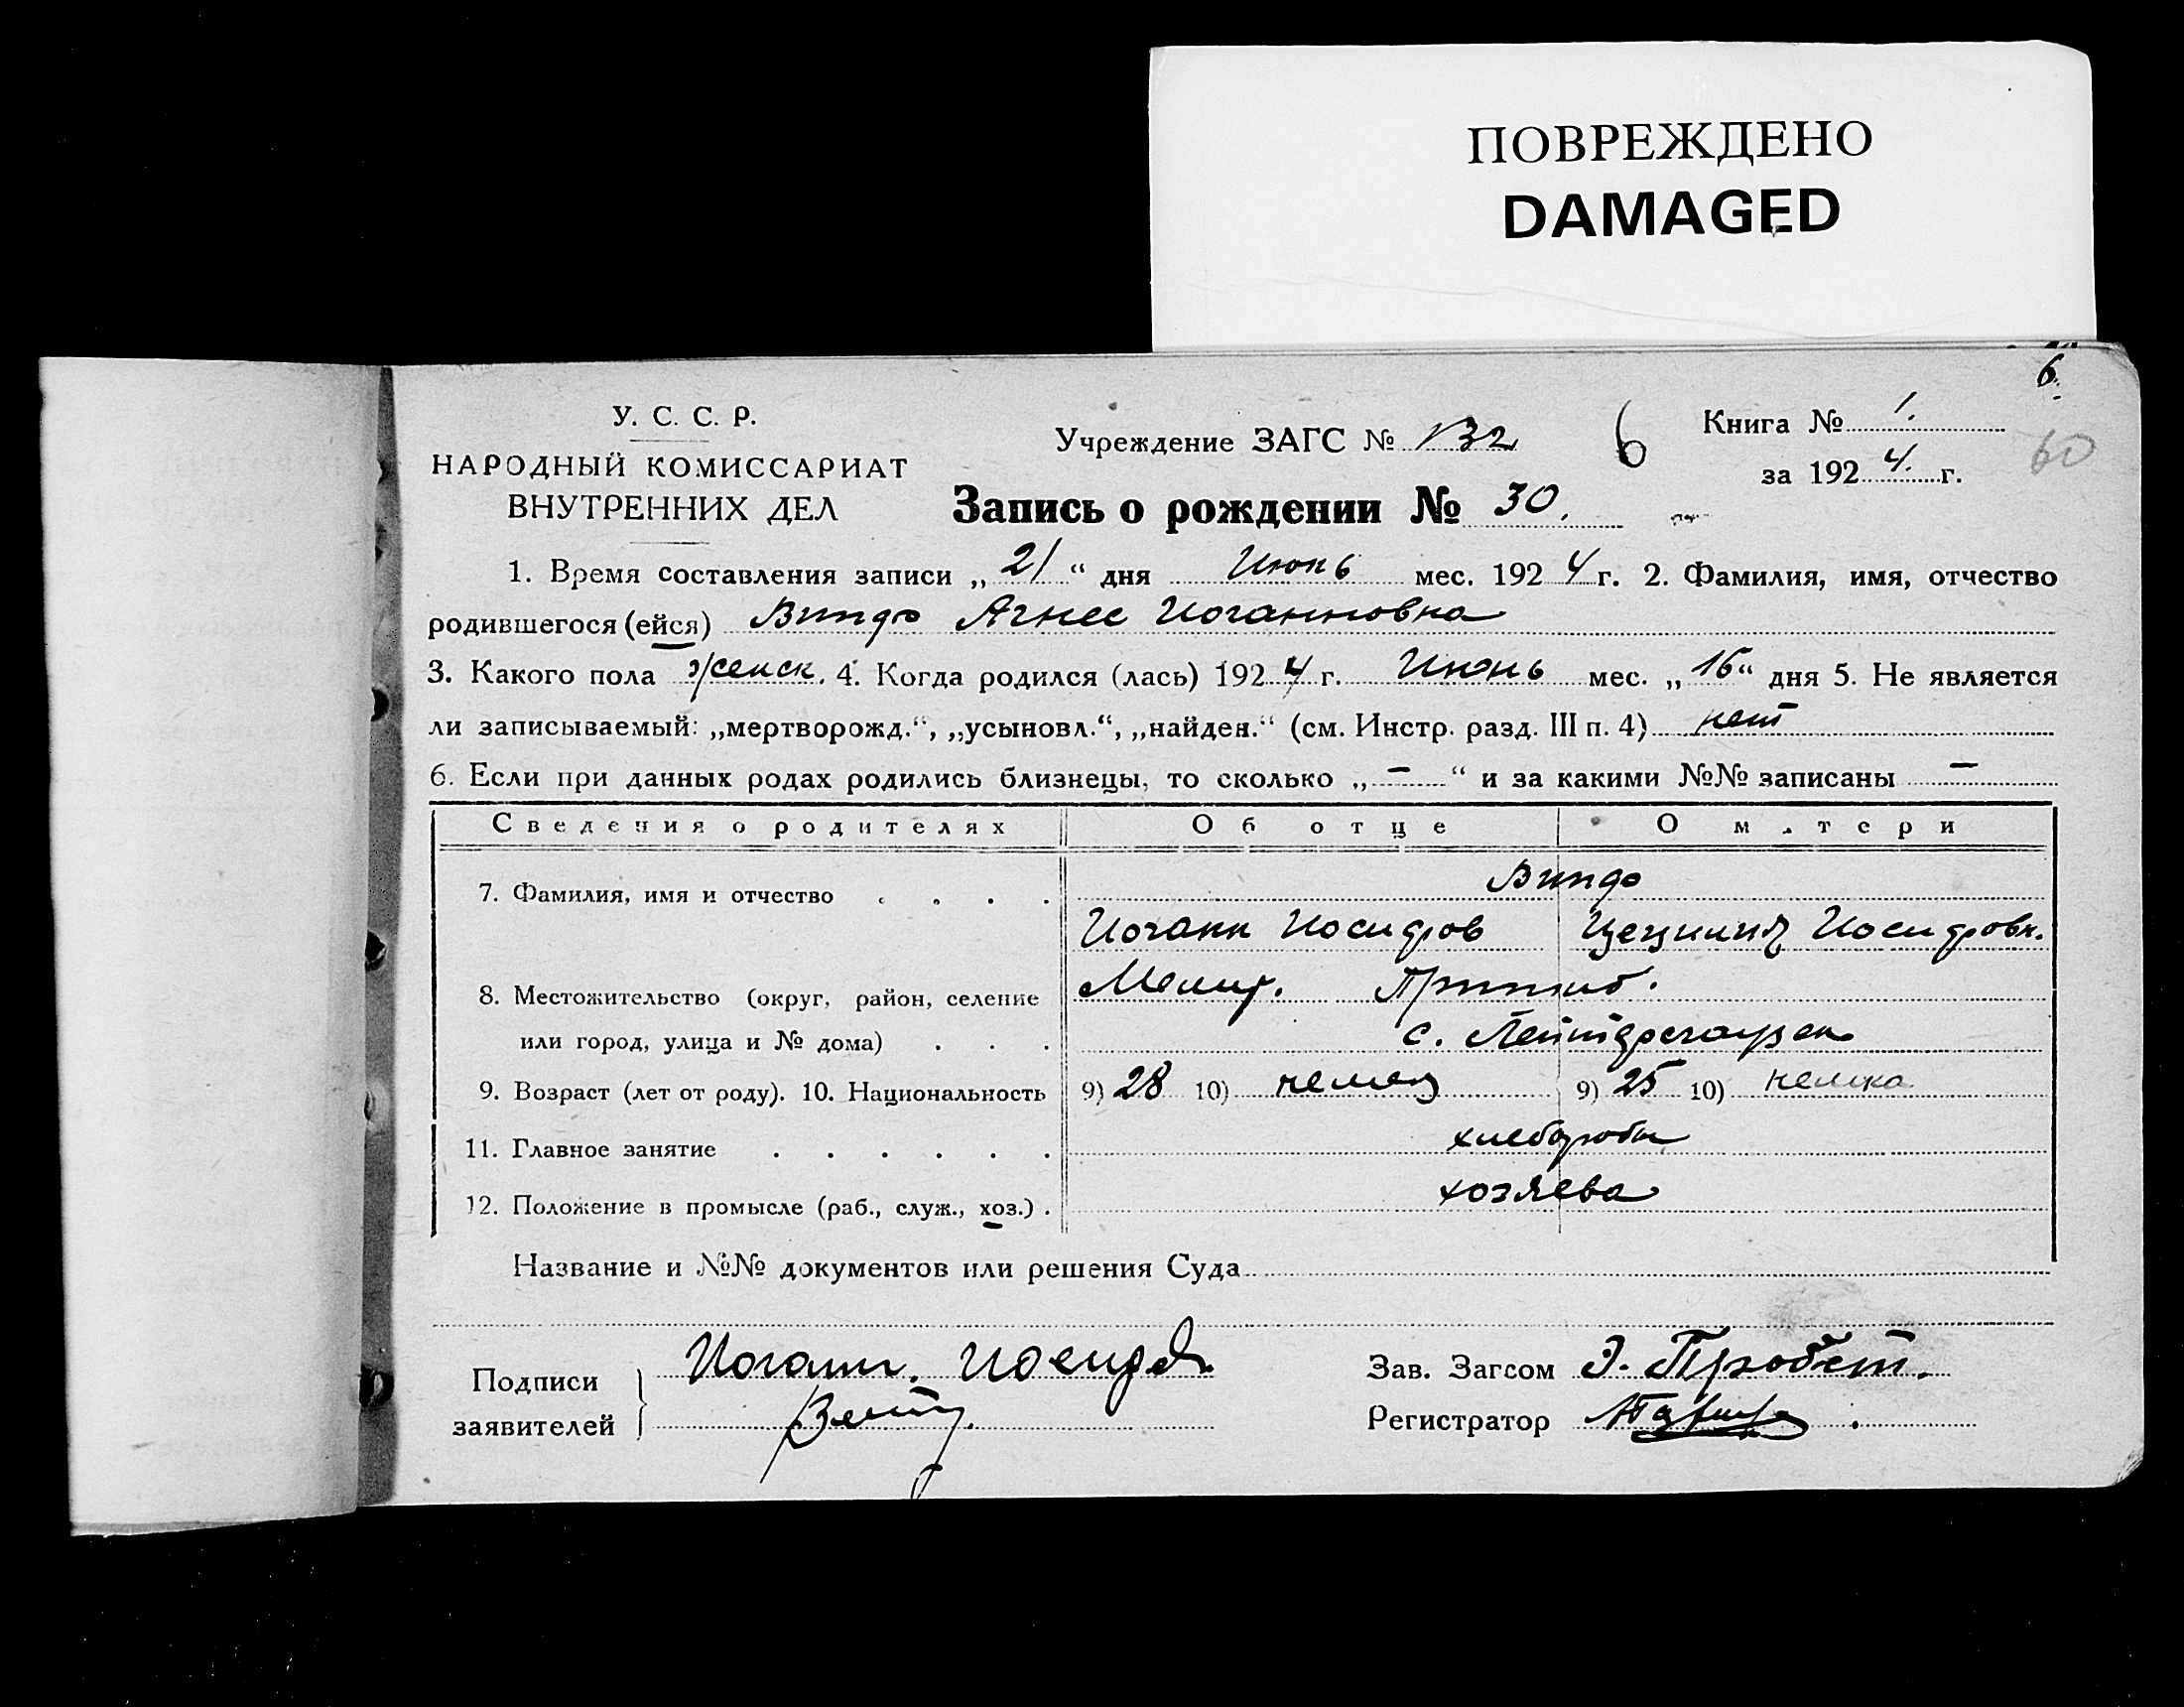 ПОВРЕЖДЕНО
DAMAGED
6.
У. С. С. Р.
НАРОДНЫЙ КОМИССАРИАТ
ВНУТРЕННИХ ДЕЛ
Учреждение ЗАГС № 132
6
Книга № 1.
за 1924. г.
60
Запись о рождении № 30.
1. Время составления записи „21“ дня Июнь мес. 1924 г. 2. Фамилия, имя, отчество
родившегося (ейся) Виндо Агнес Иоганновна
3. Какого пола женск. 4. Когда родился (лась) 1924 г. Июнь мес. „16“ дня 5. Не является
ли записываемый: „мертворожд.“, „усыновл.“, „найден.“ (см. Инстр. разд. III п. 4) нет
6. Если при данных родах родились близнецы, то сколько „—“ и за какими №№ записаны —
Сведения о родителях Об отце О м.тери
7. Фамилия, имя и отчество . . . . Виндо
Иоганн Иосифов Цецилия Иосифовн.
8. Местожительство (округ, район, селение Мелит. Пришиб.
или город, улица и № дома) . . . с.
9. Возраст (лет от роду). 10. Национальность 9) 28 10) немец 9) 25 10) немка
11. Главное занятие . . . . . . хлеборобы
12. Положение в промысле (раб., служ., хоз.) . хозяева
Название и №№ документов или решения Суда
Подписи
заявителей
Иоганн. Иосифов
Зав. Загсом Э. Пробст.
Регистратор